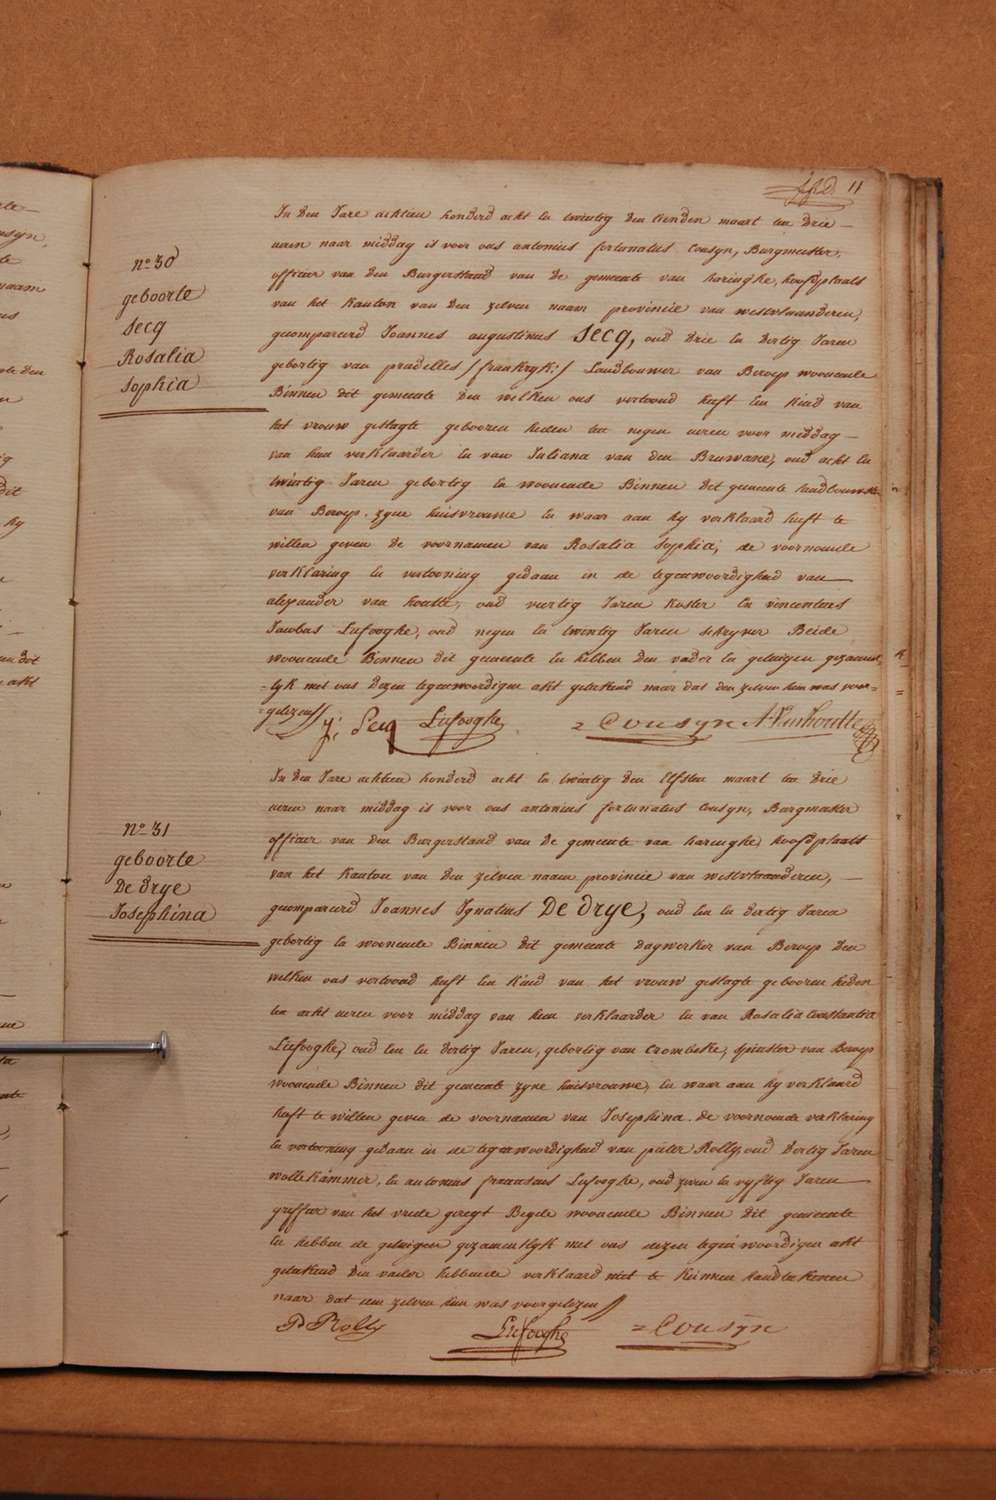 11
n° 30
geboorte
Secq
Rosalia
Sophia
In den Jare achtien honderd acht en twintig den tienden maart ten drie
uren naar middag is voor ons antonius fortunatus Cousyn, Burgmeester,
officier van den Burgerstaad van de gemeente van haringhe, hoofdplaats
van het Kanton van den zelven naam provincie van westvlaanderen,
gecompareerd Joannes augustinus Secq, oud drie en dertig Jaren
gebortig van pradelles /frankryk:/ Landbouwer van Beroep woonende
Binnen dit gemeente den welken ons vertoond heeft Een Kind van
het vrouw geslagte gebooren heden ten negen uren voor middag
van hem verklaarder en van Juliana van den Bruwane, oud acht en
twintig Jaren gebortig en woonende Binnen dit gemeente landbouwster
van Beroep. zyne huisvrouwe en waar aan hy verklaard heeft te
willen geven de voornamen van Rosalia Sophia, de voornoemde
verklaring en vertooning gedaan in de tegenwoordigheid van
alexander van houtte, oud veertig Jaren Koster En vincentius
Jacobus Liefooghe, oud negen en twintig Jaren schryver Beide
woonende Binnen dit gemeente en hebben den vader en getuigen gezament
=lyk met ons dezen tegenwoordigen akt geteekend naar dat den zelven hem was voor=
=gelezen
J: Secq Liefooghe = Cousyn A. Vanhoutte
n° 31
geboorte
De drye
Josephina
In den Jare achtien honderd acht en twintig den Elfsten maart ten drie
uren naar middag is voor ons antonius fortunatus Cousyn, Burgmeester
officier van den Burgerstand van de gemeente van haringhe, hoofdplaats
van het Kanton van den zelven naam provincie van westvlaanderen,
gecompareerd Joannes Ignatius De drye, oud Een en dertig Jaren
gebortig en woonende Binnen dit gemeente dagwerker van Beroep den
welken ons vertoond heeft Een Kind van het vrouw geslagte gebooren heden
ten acht uren voor middag van hem verklaarder en van Rosalia Constantia
Liefooghe, oud Een en dertig Jaren, gebortig van Crombeke, spinster van Beroep
woonende Binnen dit gemeente zyne huisvrouwe, en waar aan hy verklaard
heeft te willen geven de voornamen van Josephina. de voornoemde verklaring
en vertooning gedaan in de tegenwoordigheid van pieter Rolly, oud dertig Jaren
wollekammer, en antonius franciscus Liefooghe, oud zeven en vyftig Jaren
greffier van het vrede geregt Beyde woonende Binnen dit gemeente
En hebben de getuigen gezamentlyk met ons dezen tegenwoordigen akt
geteekend den vader hebbende verklaard niet te Kunnen handteekenen
naar dat den zelven hem was voorgelezen
P Rolly Liefooghe = Cousyn